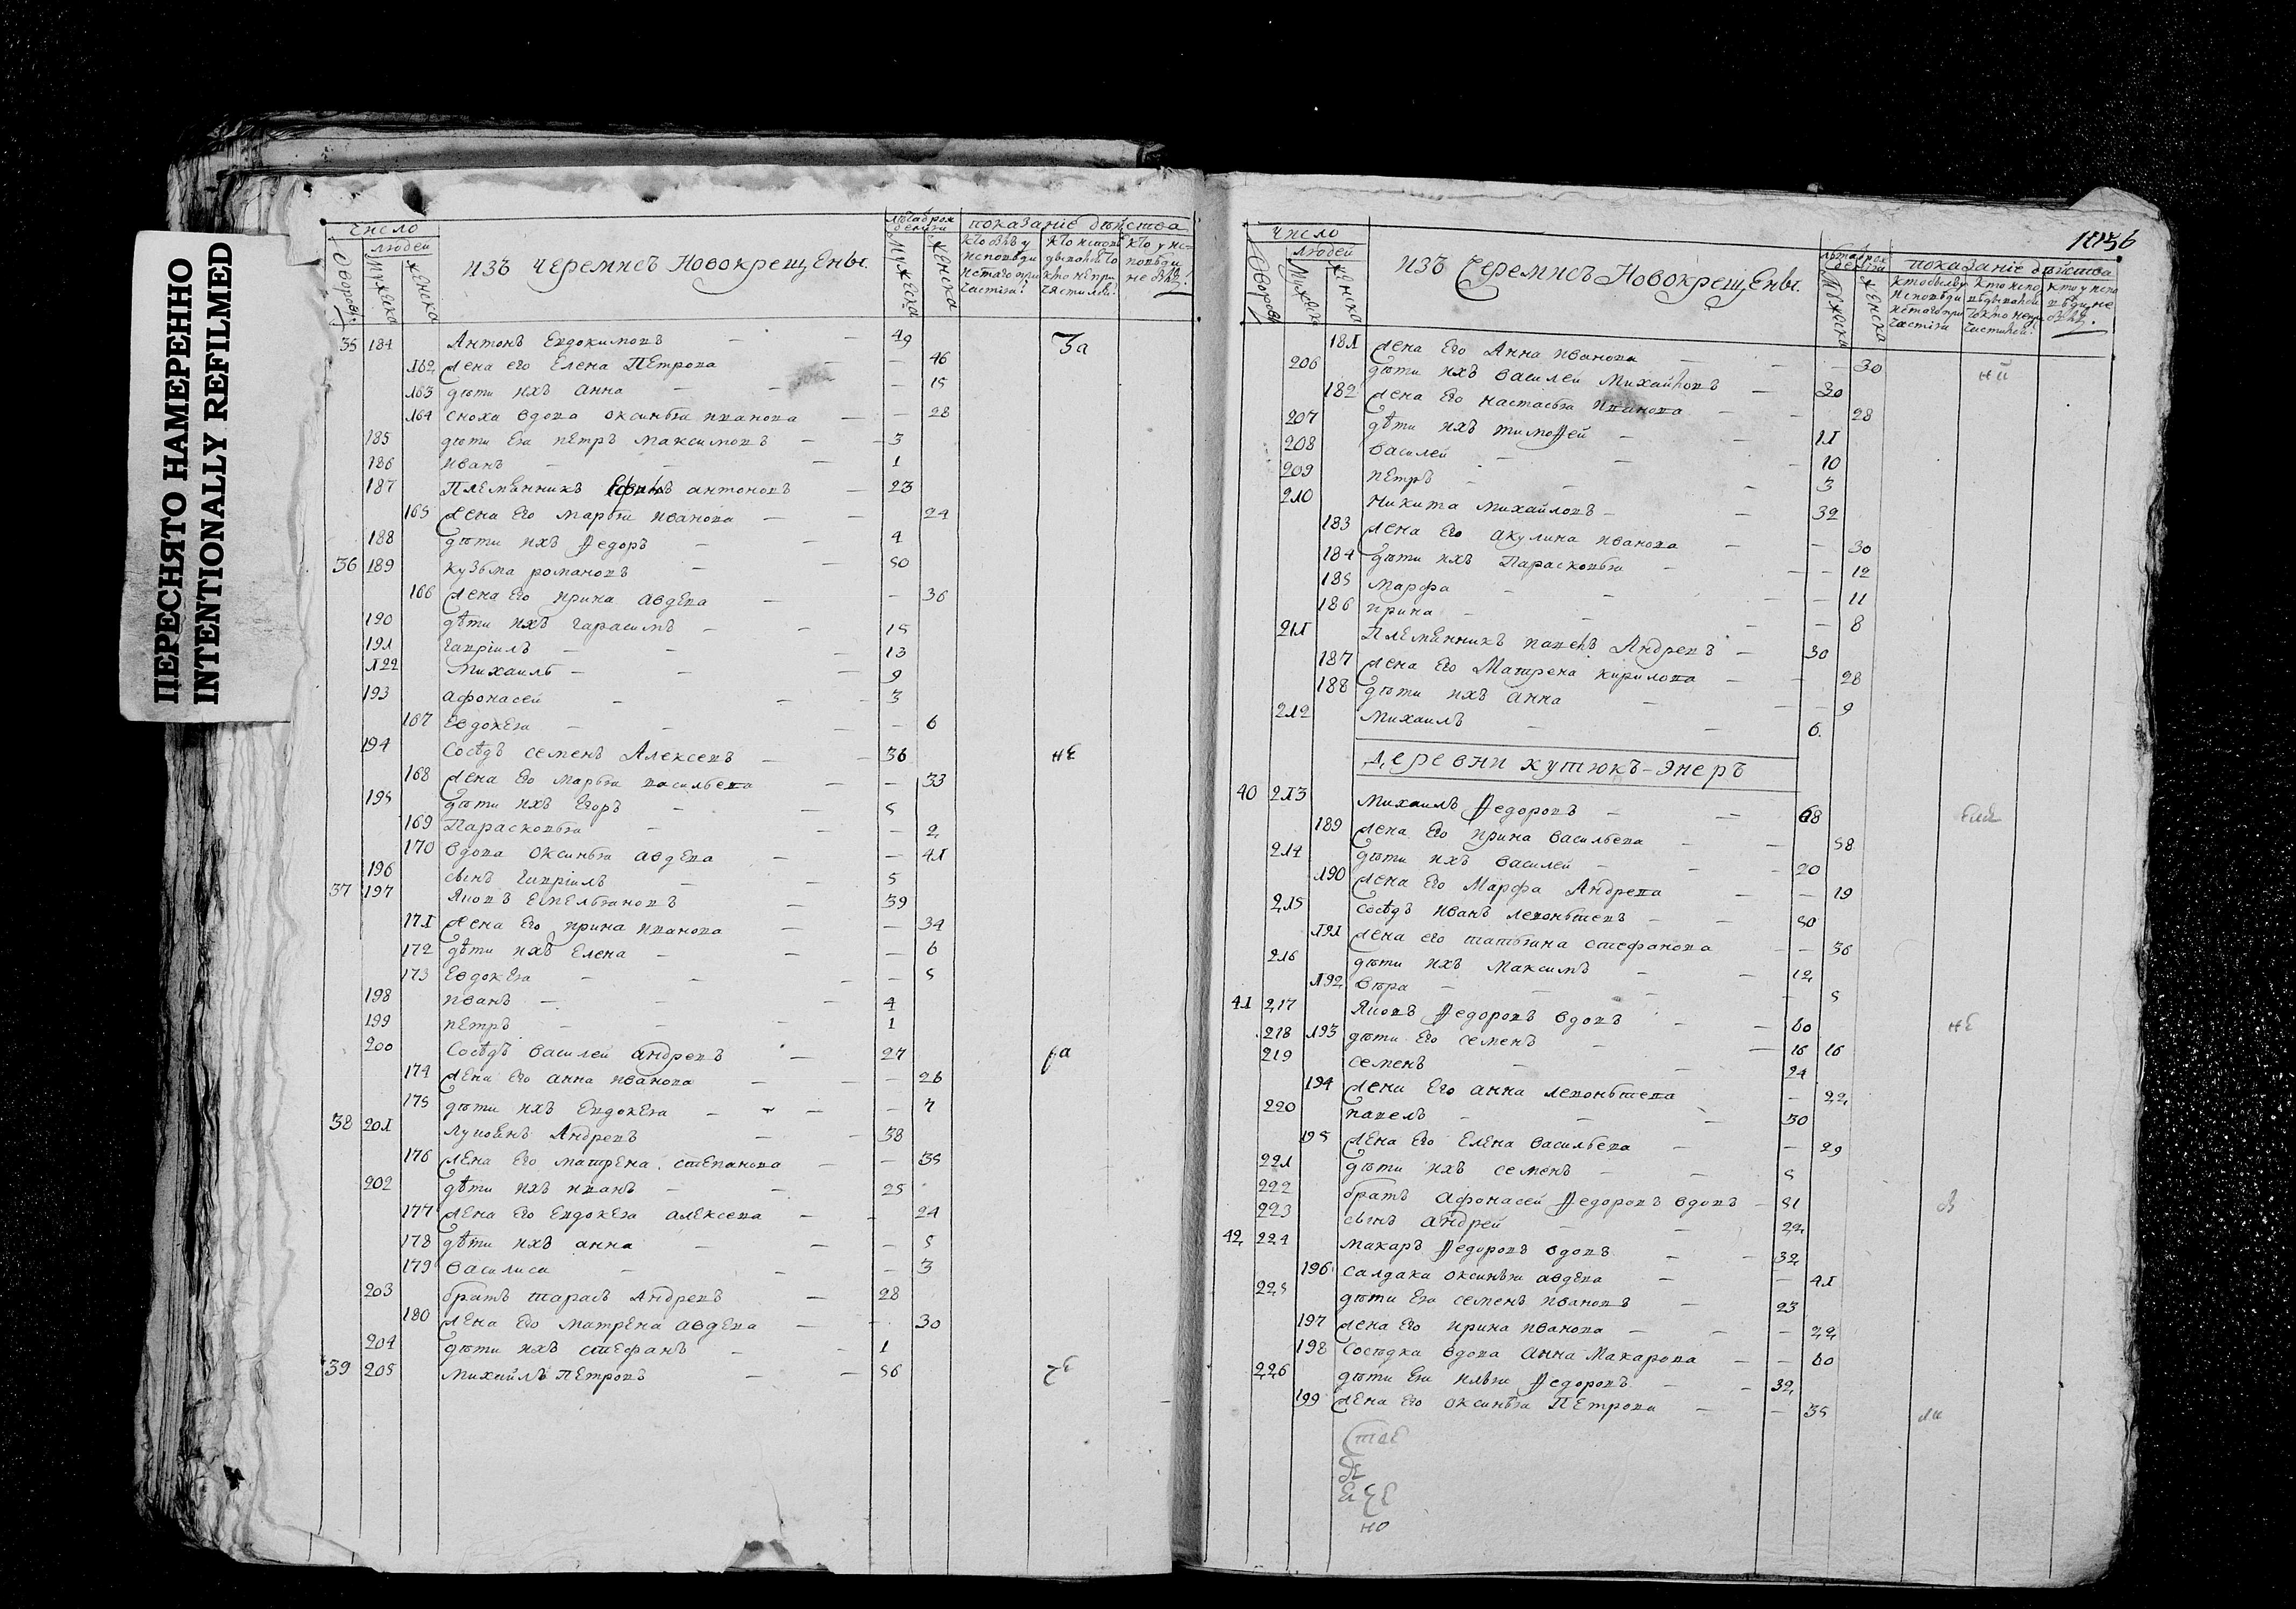 ПЕРЕСНЯТО НАМЕРЕННО
INTENTIONALLY REFILMED
число
людей
дворовъ
мужеска
женска
изъ черемисъ Новокрещены.
мужеска
женска
показаніе дѣйства
35 184 Антонъ Евдокимовъ — 49 За
162 жена его Елена Петрова — 46
163 дѣти ихъ анна — 15
164 сноха вдова оксинья иванова — 28
185 дѣти ея петръ максимовъ — 3
186 иванъ — 1
187 Племянникъ антоновъ — 23
165 жена его марья иванова — 24
188 дѣти ихъ Ѳедоръ — 4
36 189 кузьма романовъ — 50
166 жена его ирина авдева — 36
190 дѣти ихъ гарасимъ — 15
191 гавріилъ — 13
192 Михаилъ — 9
193 афонасей — 3
167 Евдокея — 6
194 Сосѣдъ семенъ Алексевъ — 36 не
168 жена его марья васильева — 33
195 дѣти ихъ Егоръ — 5
169 Парасковья — 2
170 вдова оксинья авдева — 41
196 сынъ гавріилъ — 5
37 197 Яковъ Емельяновъ — 39
171 жена его ирина иванова — 34
172 дѣти ихъ Елена — 6
173 Евдокея — 5
198 иванъ — 4
199 петръ — 1
200 Сосѣдъ василей андревъ — 27
174 жена его анна иванова — 26
175 дѣти ихъ Евдокея — 7
38 201 Андревъ — 38
176 жена его матрена степанова — 35
202 дѣти ихъ иванъ — 25
177 жена его Евдокея алексева — 24
178 дѣти ихъ анна — 5
179 василиса — 3
203 братъ тарасъ Андревъ — 28
180 жена его матрена авдева — 30
204 дѣти ихъ стефанъ — 1
39 205 михайлъ Петровъ — 56
1056
число
людей
дворовъ
мужеска
женска
изъ Черемисъ Новокрещены.
мужеска
женска
показаніе дѣйства
181 жена его Анна иванова — 30
206 дѣти ихъ василей Михайловъ — 30
182 жена его настасья иванова — 28
207 дѣти ихъ тимоѲей — 11
208 василей — 10
209 петръ — 3
210 никита михайловъ — 32
183 жена его акулина иванова — 30
184 дѣти ихъ Парасковья — 12
185 марфа — 11
186 ирина — 8
211 Племянникъ павелъ Андревъ — 30
187 жена его Матрена кирилова — 28
188 дѣти ихъ анна — 9
212 михаилъ — 6
деревни кутюкъ-энеръ
40 213 михаилъ Ѳедоровъ — 68
189 жена его ирина васильева — 58
214 дѣти ихъ василей — 20
190 жена его Марфа Андрева — 19
215 сосѣдъ иванъ леоньтевъ — 50
191 жена его татьяна стефанова — 36
216 дѣти ихъ максимъ — 12
192 вѣра — 5
41 217 Яковъ Ѳедоровъ вдовъ — 60 не
218 193 дѣти его семенъ — 16 16
219 семенъ — 24
194 жена его анна леоньтева — 22
220 павелъ — 30
195 жена его Елена васильева — 29
221 дѣти ихъ семенъ — 5
222 братъ афонасей Ѳедоровъ вдовъ — 51
223 сынъ андрей — 22
42 224 макаръ Ѳедоровъ вдовъ — 32
196 салдака оксинья авдева — 41
225 дѣти ея семенъ ивановъ — 23
197 жена его ирина иванова — 22
198 Сосѣдка вдова анна Макарова — 60
226 дѣти ея илья Ѳедоровъ — 32
199 жена его оксинья Петрова — 35 ли
но